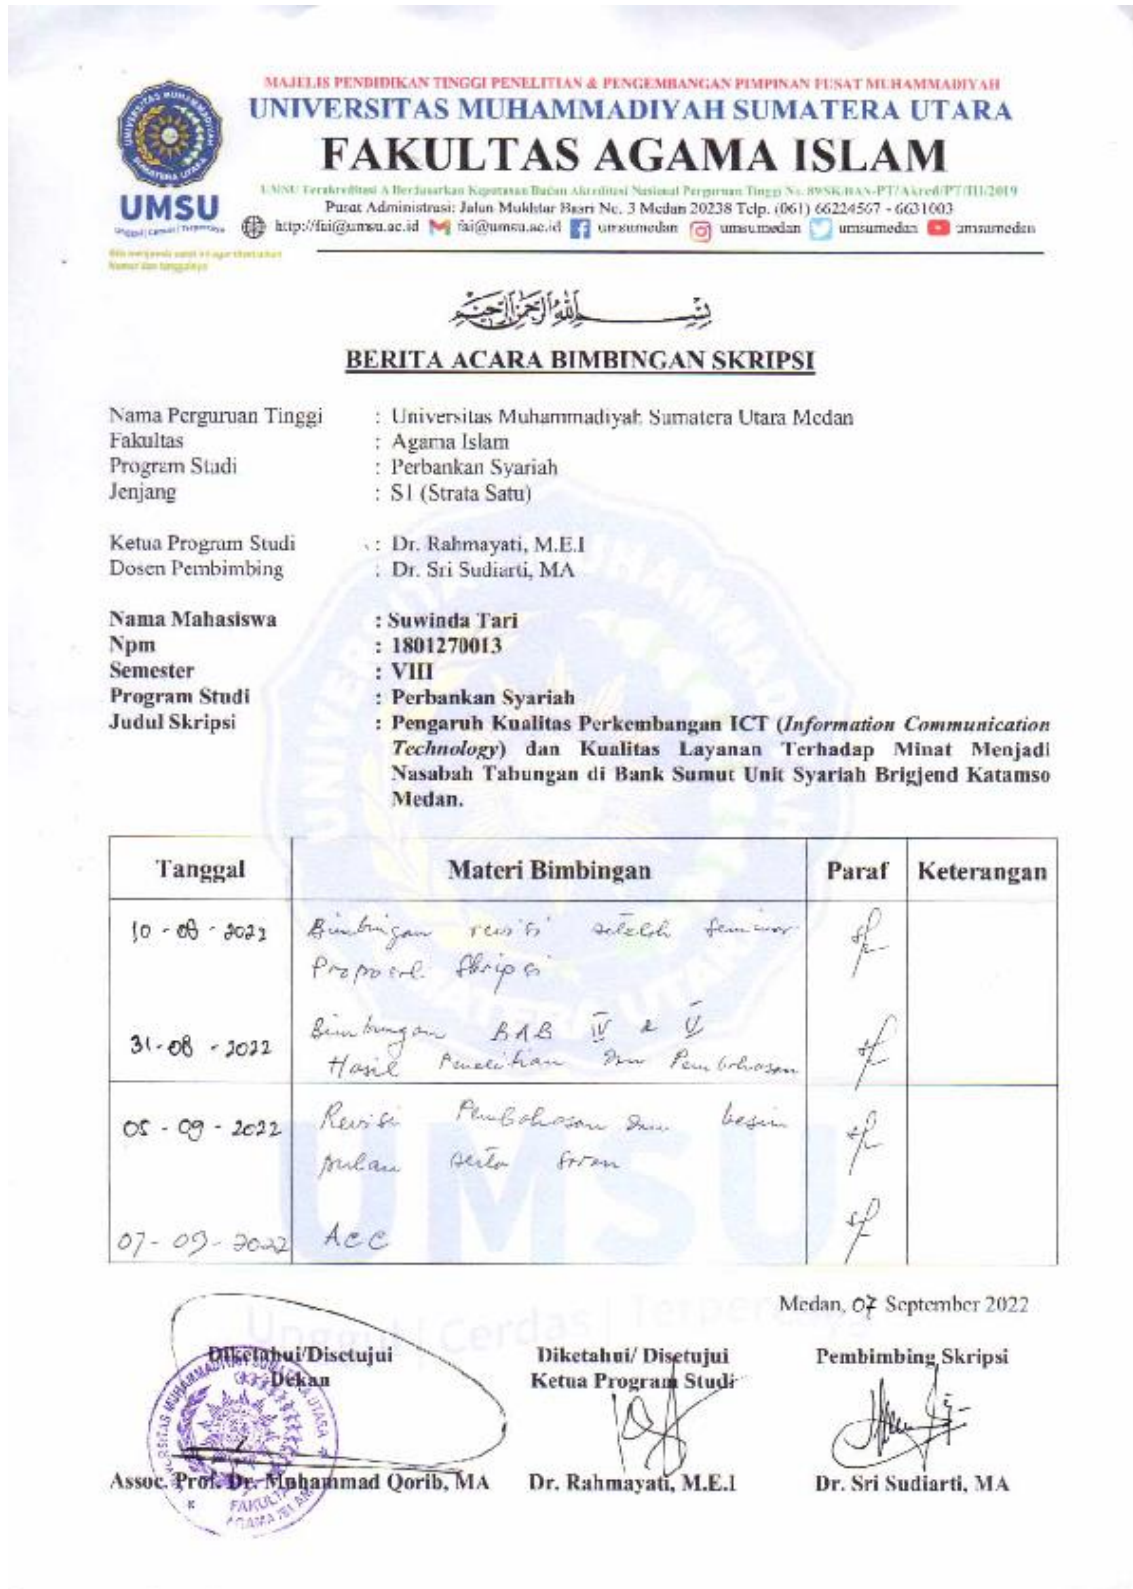 MAJELIS PENDIDIKAN TINGGI PENELITIAN & PENGEMBANGAN PIMPINAN PUSAT MUHAMMADIYAH
UNIVERSITAS MUHAMMADIYAH SUMATERA UTARA
FAKULTAS AGAMA ISLAM
UMSU Terakreditasi A Berdasarkan Keputusan Badan Akreditasi Nasional Perguruan Tinggi No. 89/SK/BAN-PT/Akred/PT/III/2019
Pusat Administrasi: Jalan Mukhtar Basri No. 3 Medan 20238 Telp. (061) 66224567 - 6631003
http://fai@umsu.ac.id fai@umsu.ac.id umsumedan umsumedan umsumedan umsumedan
UMSU
Unggul | Cerdas | Terpercaya
Bila menjawab surat ini agar disebutkan
Nomor dan tanggalnya
بسم الله الرحمن الرحيم
BERITA ACARA BIMBINGAN SKRIPSI
Nama Perguruan Tinggi : Universitas Muhammadiyah Sumatera Utara Medan
Fakultas : Agama Islam
Program Studi : Perbankan Syariah
Jenjang : S1 (Strata Satu)
Ketua Program Studi : Dr. Rahmayati, M.E.I
Dosen Pembimbing : Dr. Sri Sudiarti, MA
Nama Mahasiswa : Suwinda Tari
Npm : 1801270013
Semester : VIII
Program Studi : Perbankan Syariah
Judul Skripsi : Pengaruh Kualitas Perkembangan ICT (Information Communication
Technology) dan Kualitas Layanan Terhadap Minat Menjadi
Nasabah Tabungan di Bank Sumut Unit Syariah Brigjend Katamso
Medan.
Tanggal Materi Bimbingan Paraf Keterangan
10 - 08 - 2022 Bimbingan revisi setelah seminar
Proposal Skripsi
31-08 - 2022 Bimbingan BAB IV & V
Hasil Penelitian dan Pembahasan
05 - 09 - 2022 Revisi Pembahasan dan kesim
pulan serta saran
07- 09- 2022 ACC
Medan, 07 September 2022
Diketahui/Disetujui
Dekan
Diketahui/ Disetujui
Ketua Program Studi
Pembimbing Skripsi
Assoc. Prof. Dr. Muhammad Qorib, MA
Dr. Rahmayati, M.E.I
Dr. Sri Sudiarti, MA
UNIVERSITAS MUHAMMADIYAH SUMATERA UTARA
FAKULTAS
AGAMA ISLAM